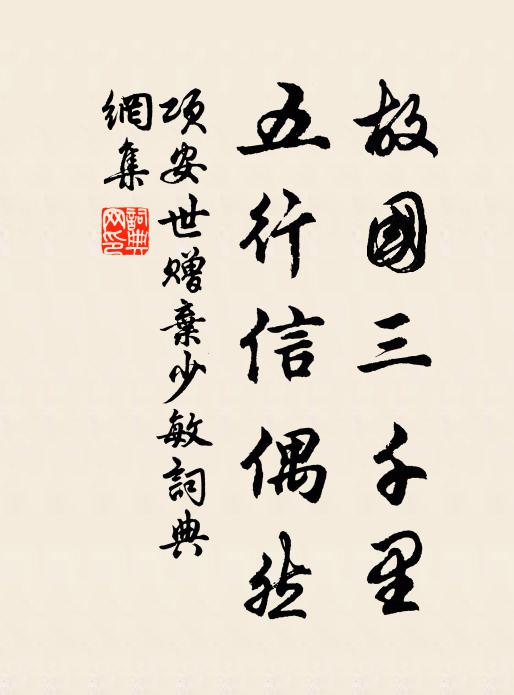 故國三千里
五行信偶然
項安世贈棄少敏詞典
網集
詞典網印